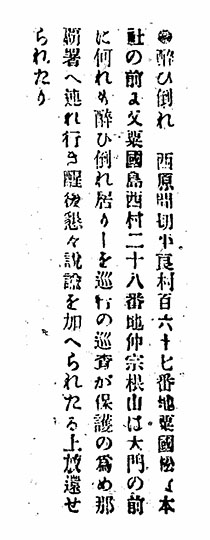 酔ひ倒れ　西原間切平良村百六十七番地粟國松は本
社の前に又粟國島西村二十八番地仲宗根山は大門の前
に何れも酔ひ倒れ居りしを巡行の巡査が保護の為め那
覇署へ連れ行き醒後懇々説諭を加へられたる上放還せ
られたり